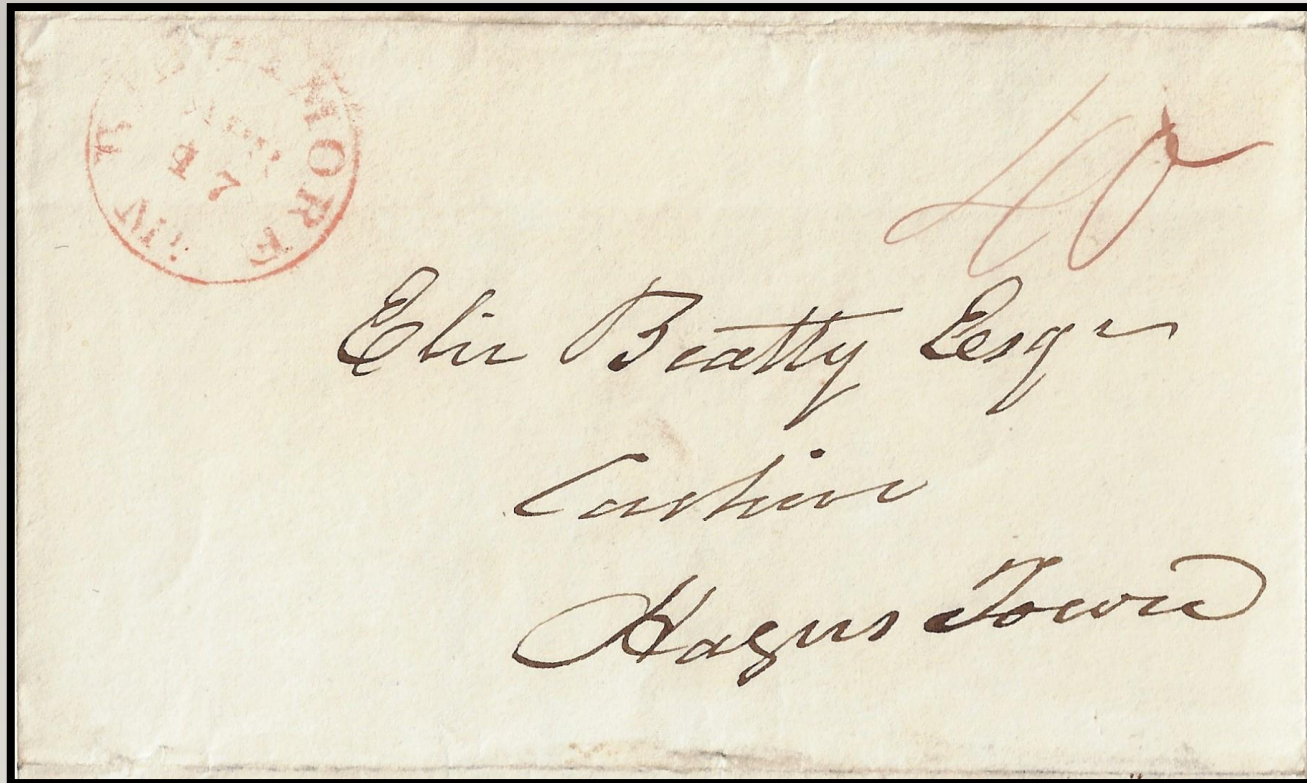 BALTIMORE Md.
APR
17
40
Elie Beatty Esqr
Cashier
Hagers Town